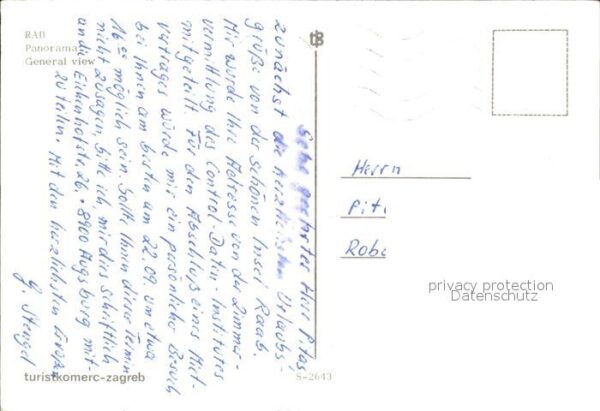 RAB
Panorama
General view
tB
Sehr geehrter Herr Pitas
zunächst die herzlichsten Urlaubs-
grüße von der schönen Insel Raab.
Mir wurde Ihre Adresse von der Zimmer-
vermittlung des Control Daten-Institutes
mitgeteilt. Für den Abschluß eines Miet-
vertrages würde mir ein persönlicher Besuch
bei Ihnen am besten am 22.09. um etwa
16 00 möglich sein. Sollte Ihnen dieser Termin
nicht zusagen, bitte ich, mir dies schriftlich
an die 26, 8900 Augsburg mit-
zuteilen. Mit den herzlichsten Grüßen
G. Stengel
Herrn
Pit
Robe
privacy protection
Datenschutz
turistkomerc-zagreb
S-2643